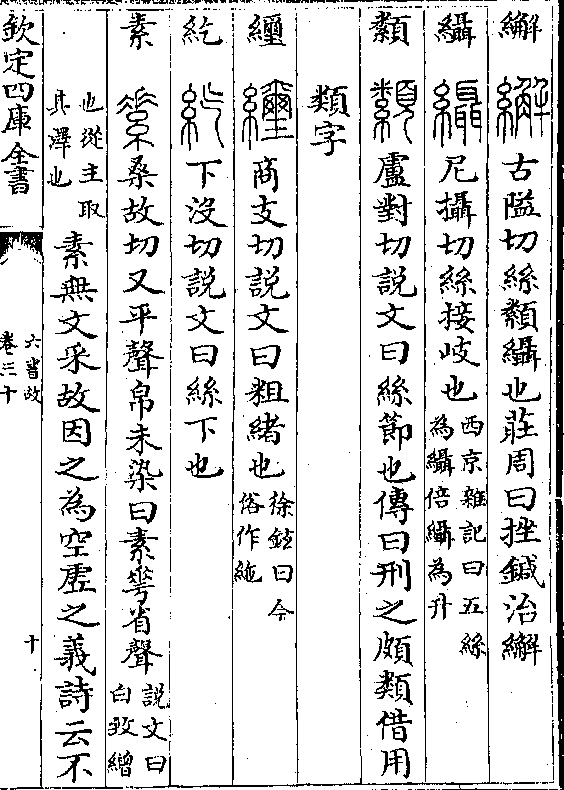 繲 古隘切絲纇䌰也莊周曰挫鍼治繲
䌰 尼攝切絲接歧也西京雜記曰五絲為䌰倍䌰為升
纇 盧對切説文曰絲節也傳曰刑之頗纇借用
類字
纚 商支切説文曰粗緒也徐鉉曰今俗作絁
紇 下沒切説文曰絲下也
素 桑故切又平聲帛未染曰素𠌶省聲説文曰白致繒
也從主取其澤也素無文采故因之為空虛之義詩云不
欽定四庫全書
六書故
卷三十
十